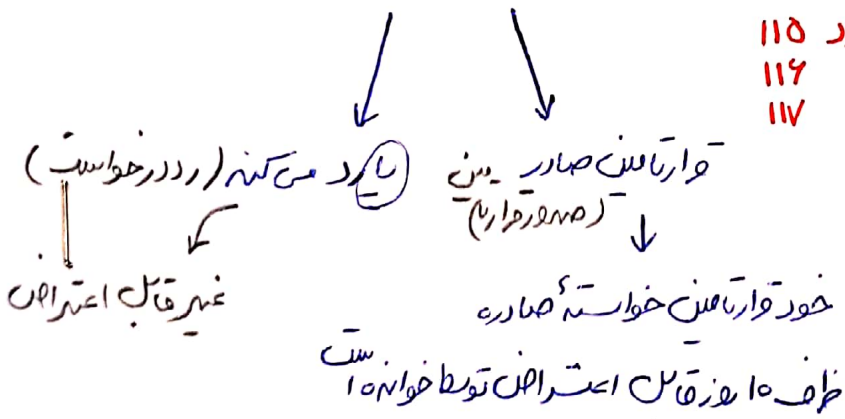 د ۱۱۵
۱۱۶
۱۱۷
قرار تامین صادر
(صدور قرار تا)
یا رد می کنه (رد درخواست)
غیر قابل اعتراض
خود قرار تامین خواستهٔ صادره
ظرف ۱۰ روز قابل اعتراض توسط خوانده است